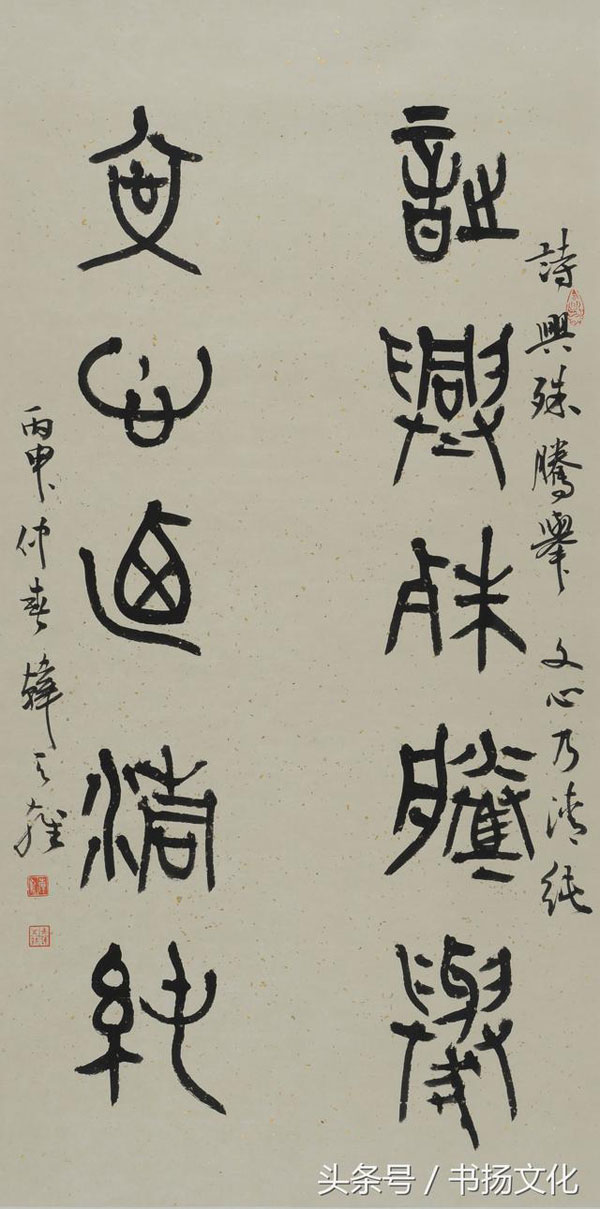 詩興殊騰舉 文心乃清純
詩興殊騰舉
文心乃清純
丙申仲春韓天雍
头条号 / 书扬文化